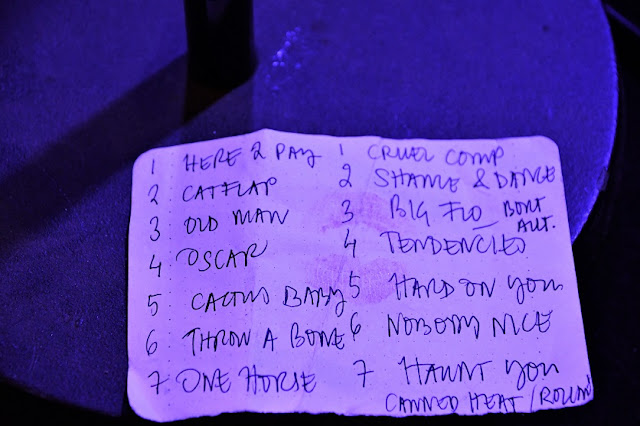 1 HERE 2 PAY
2 CATFLAP
3 OLD MAN
4 OSCAR
5 CACTUS BABY
6 THROW A BONE
7 ONE HORSE
1 CRUEL COMP
2 SHAME & DANCE
3 BIG FLO
ALT.
4 TENDENCIES
5 HARD ON YOU
6 NOBODYS NICE
7 HAUNT YOU
CANNED HEAT /